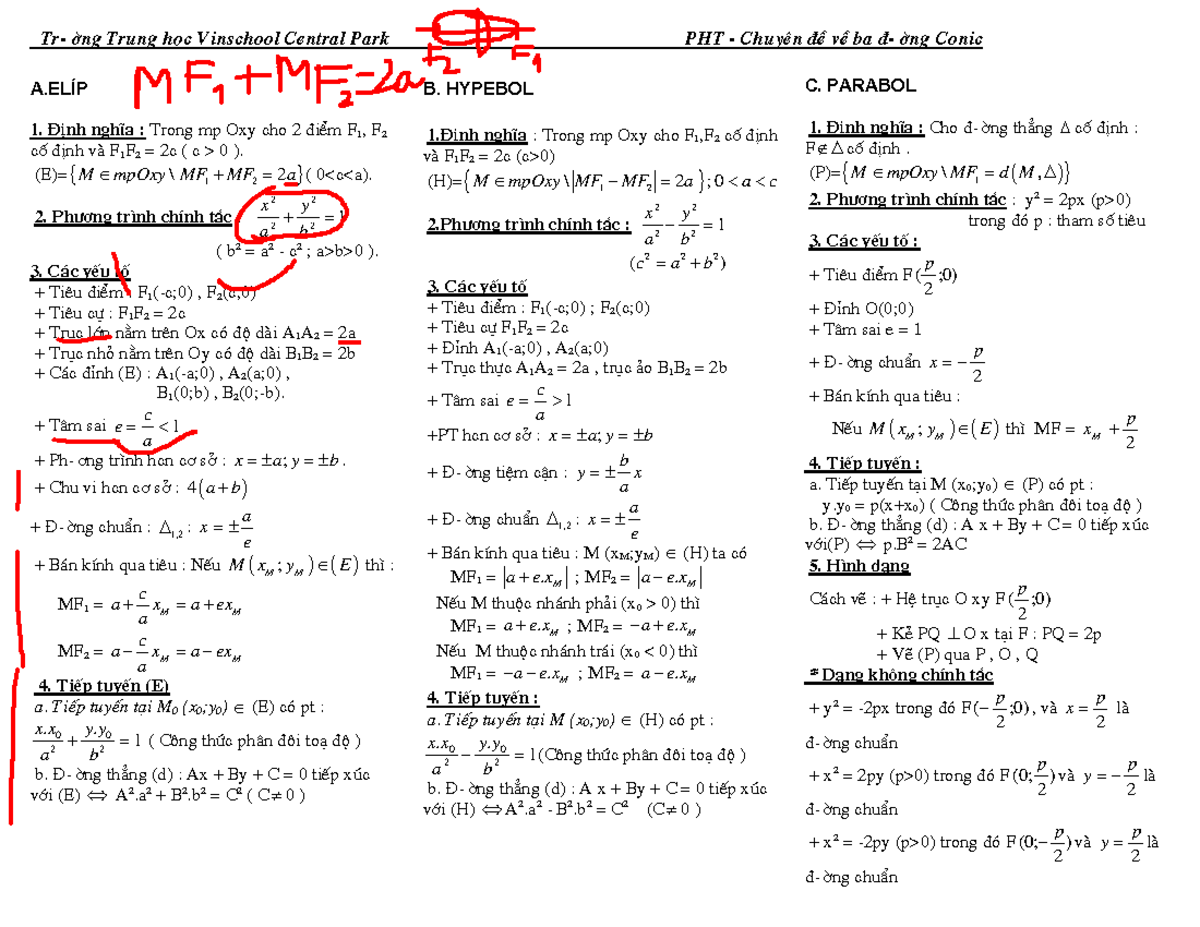 Tr- ờng Trung học Vinschool Central Park
PHT - Chuyên đề về ba đ- ờng Conic
F₂ F₁
MF₁ + MF₂ = 2a
A.ELÍP
1. Định nghĩa : Trong mp Oxy cho 2 điểm F₁, F₂
cố định và F₁F₂ = 2c ( c > 0 ).
(E)={M ∈ mpOxy \ MF₁ + MF₂ = 2a}( 0<c<a).
2. Phương trình chính tắc x²/a² + y²/b² = 1
( b² = a² - c² ; a>b>0 ).
3. Các yếu tố
+ Tiêu điểm : F₁(-c;0) , F₂(c;0)
+ Tiêu cự : F₁F₂ = 2c
+ Trục lớn nằm trên Ox có độ dài A₁A₂ = 2a
+ Trục nhỏ nằm trên Oy có độ dài B₁B₂ = 2b
+ Các đỉnh (E) : A₁(-a;0) , A₂(a;0) ,
B₁(0;b) , B₂(0;-b).
+ Tâm sai e = c/a < 1
+ Ph- ơng trình hcn cơ sở : x = ±a; y = ±b .
+ Chu vi hcn cơ sở : 4(a+b)
+ Đ- ờng chuẩn : Δ₁,₂ : x = ± a/e
+ Bán kính qua tiêu : Nếu M(x_M ; y_M) ∈ (E) thì :
MF₁ = a + c/a x_M = a + ex_M
MF₂ = a − c/a x_M = a − ex_M
4. Tiếp tuyến (E)
a. Tiếp tuyến tại M₀ (x₀;y₀) ∈ (E) có pt :
x.x₀/a² + y.y₀/b² = 1 ( Công thức phân đôi toạ độ )
b. Đ- ờng thẳng (d) : Ax + By + C = 0 tiếp xúc
với (E) ⇔ A².a² + B².b² = C² ( C≠ 0 )
B. HYPEBOL
1.Định nghĩa : Trong mp Oxy cho F₁,F₂ cố định
và F₁F₂ = 2c (c>0)
(H)={M ∈ mpOxy \ |MF₁ − MF₂| = 2a } ; 0 < a < c
2.Phương trình chính tắc : x²/a² − y²/b² = 1
(c² = a² + b²)
3. Các yếu tố
+ Tiêu điểm : F₁(-c;0) ; F₂(c;0)
+ Tiêu cự F₁F₂ = 2c
+ Đỉnh A₁(-a;0) , A₂(a;0)
+ Trục thực A₁A₂ = 2a , trục ảo B₁B₂ = 2b
+ Tâm sai e = c/a > 1
+PT hcn cơ sở : x = ±a; y = ±b
+ Đ- ờng tiệm cận : y = ± b/a x
+ Đ- ờng chuẩn Δ₁,₂ : x = ± a/e
+ Bán kính qua tiêu : M (x_M;y_M) ∈ (H) ta có
MF₁ = |a + e.x_M| ; MF₂ = |a − e.x_M|
Nếu M thuộc nhánh phải (x₀ > 0) thì
MF₁ = a + e.x_M ; MF₂ = −a + e.x_M
Nếu M thuộc nhánh trái (x₀ < 0) thì
MF₁ = −a − e.x_M ; MF₂ = a − e.x_M
4. Tiếp tuyến :
a. Tiếp tuyến tại M (x₀;y₀) ∈ (H) có pt :
x.x₀/a² − y.y₀/b² = 1(Công thức phân đôi toạ độ )
b. Đ- ờng thẳng (d) : A x + By + C= 0 tiếp xúc
với (H) ⇔A².a² - B².b² = C² (C≠ 0 )
C. PARABOL
1. Định nghĩa : Cho đ- ờng thẳng Δ cố định :
F∉ Δ cố định .
(P)={M ∈ mpOxy \ MF₁ = d(M,Δ)}
2. Phương trình chính tắc : y² = 2px (p>0)
trong đó p : tham số tiêu
3. Các yếu tố :
+ Tiêu điểm F(p/2;0)
+ Đỉnh O(0;0)
+ Tâm sai e = 1
+ Đ- ờng chuẩn x = − p/2
+ Bán kính qua tiêu :
Nếu M(x_M ; y_M) ∈ (E) thì MF = x_M + p/2
4. Tiếp tuyến :
a. Tiếp tuyến tại M (x₀;y₀) ∈ (P) có pt :
y.y₀ = p(x+x₀) ( Công thức phân đôi toạ độ )
b. Đ- ờng thẳng (d) : A x + By + C= 0 tiếp xúc
với(P) ⇔ p.B² = 2AC
5. Hình dạng
Cách vẽ : + Hệ trục O xy F(p/2;0)
+ Kẻ PQ ⊥ O x tại F : PQ = 2p
+ Vẽ (P) qua P , O , Q
* Dạng không chính tắc
+ y² = -2px trong đó F(− p/2;0), và x = p/2 là
đ- ờng chuẩn
+ x² = 2py (p>0) trong đó F(0; p/2) và y = − p/2 là
đ- ờng chuẩn
+ x² = -2py (p>0) trong đó F(0;− p/2) và y = p/2 là
đ- ờng chuẩn